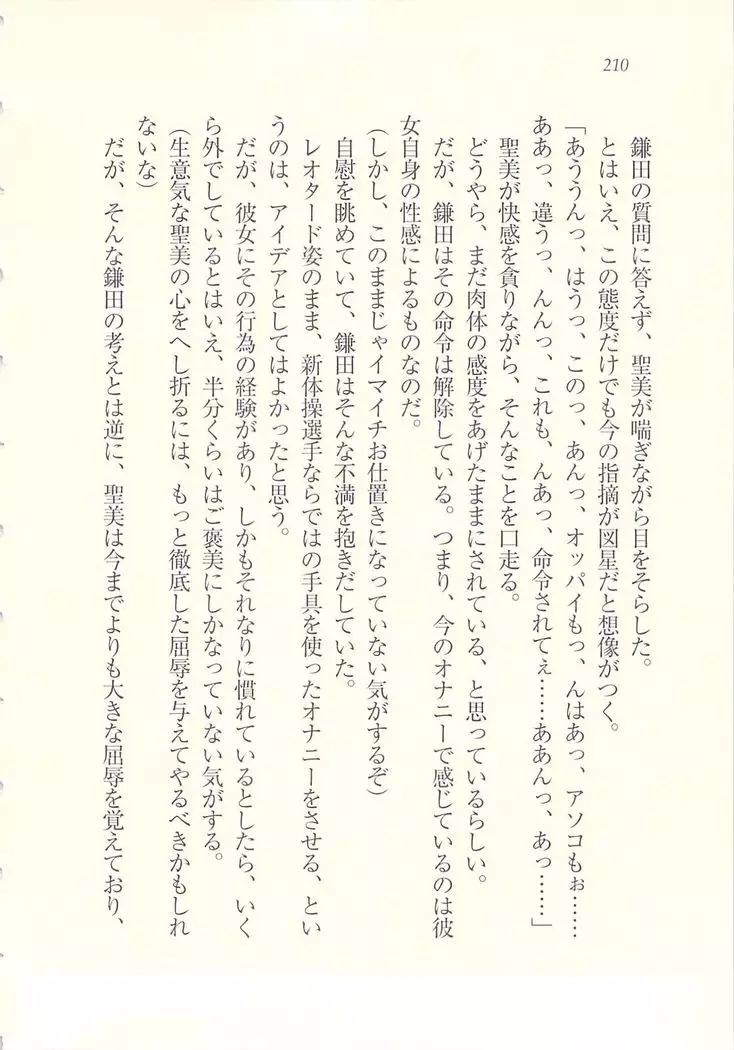 210
鎌田の質問に答えず、聖美が喘ぎながら目をそらした。
とはいえ、この態度だけでも今の指摘が図星だと想像がつく。
「あううんっ、はうっ、このっ、あんっ、オッパイもっ、んはあっ、アソコもぉ……
ああっ、違うっ、んんっ、これも、んあっ、命令されてぇ……ああんっ、あっ……」
聖美が快感を貪りながら、そんなことを口走る。
どうやら、まだ肉体の感度をあげたままにされている、と思っているらしい。
だが、鎌田はその命令は解除している。つまり、今のオナニーで感じているのは彼
女自身の性感によるものなのだ。
(しかし、このままじゃイマイチお仕置きになっていない気がするぞ)
自慰を眺めていて、鎌田はそんな不満を抱きだしていた。
レオタード姿のまま、新体操選手ならではの手具を使ったオナニーをさせる、とい
うのは、アイデアとしてはよかったと思う。
だが、彼女にその行為の経験があり、しかもそれなりに慣れているとしたら、いく
ら外でしているとはいえ、半分くらいはご褒美にしかなっていない気がする。
(生意気な聖美の心をへし折るには、もっと徹底した屈辱を与えてやるべきかもしれ
ないな)
だが、そんな鎌田の考えとは逆に、聖美は今までよりも大きな屈辱を覚えており、